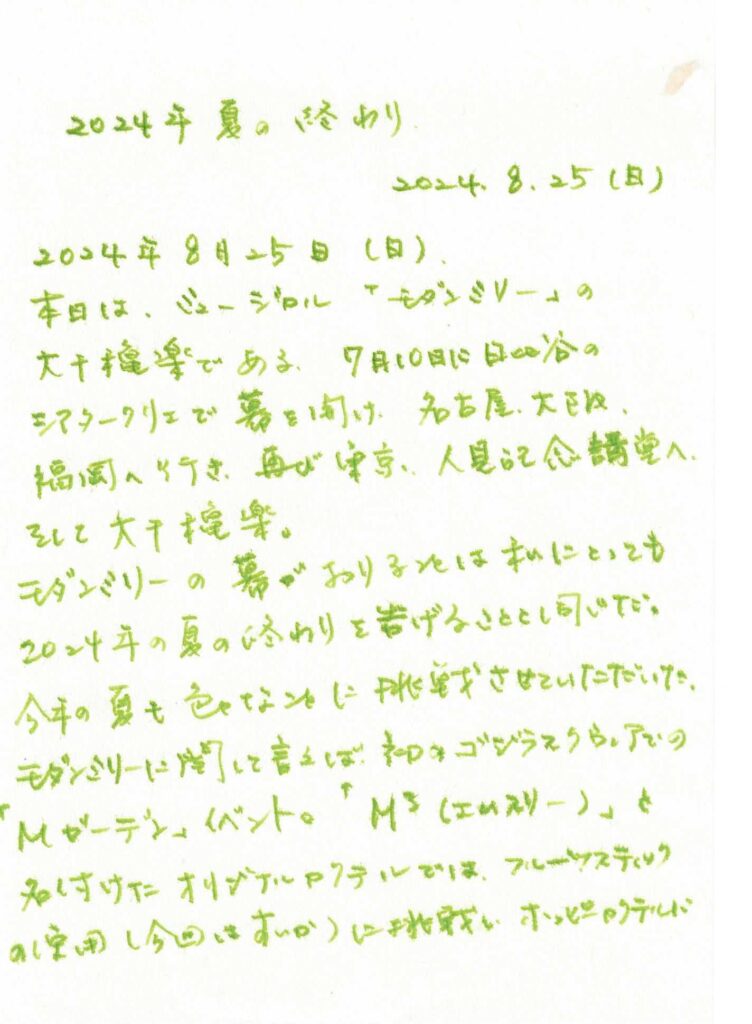 2024年 夏の終わり
2024. 8. 25 (日)
2024年8月25日 (日).
本日は、ミュージカル 「モダンミリー」の
大千穐楽である. 7月10日に日比谷の
シアタークリエで幕を開け、名古屋、大阪、
福岡へ行き、再び東京、人見記念講堂へ、
そして大千穐楽。
モダンミリーの幕がおりることは私にとっても
2024年の夏の終わりを告げることと同じだ。
今年の夏も色々なことに挑戦させていただいた。
モダンミリーに関して言えば、初の ゴジラスクウェアでの
「Mガーデン」イベント。「M³ (エムスリー)」と
名付けた オリジナルカクテルでは、フルーツスティック
の使用 (今回はすいか) に挑戦し、ホッピーカクテルに